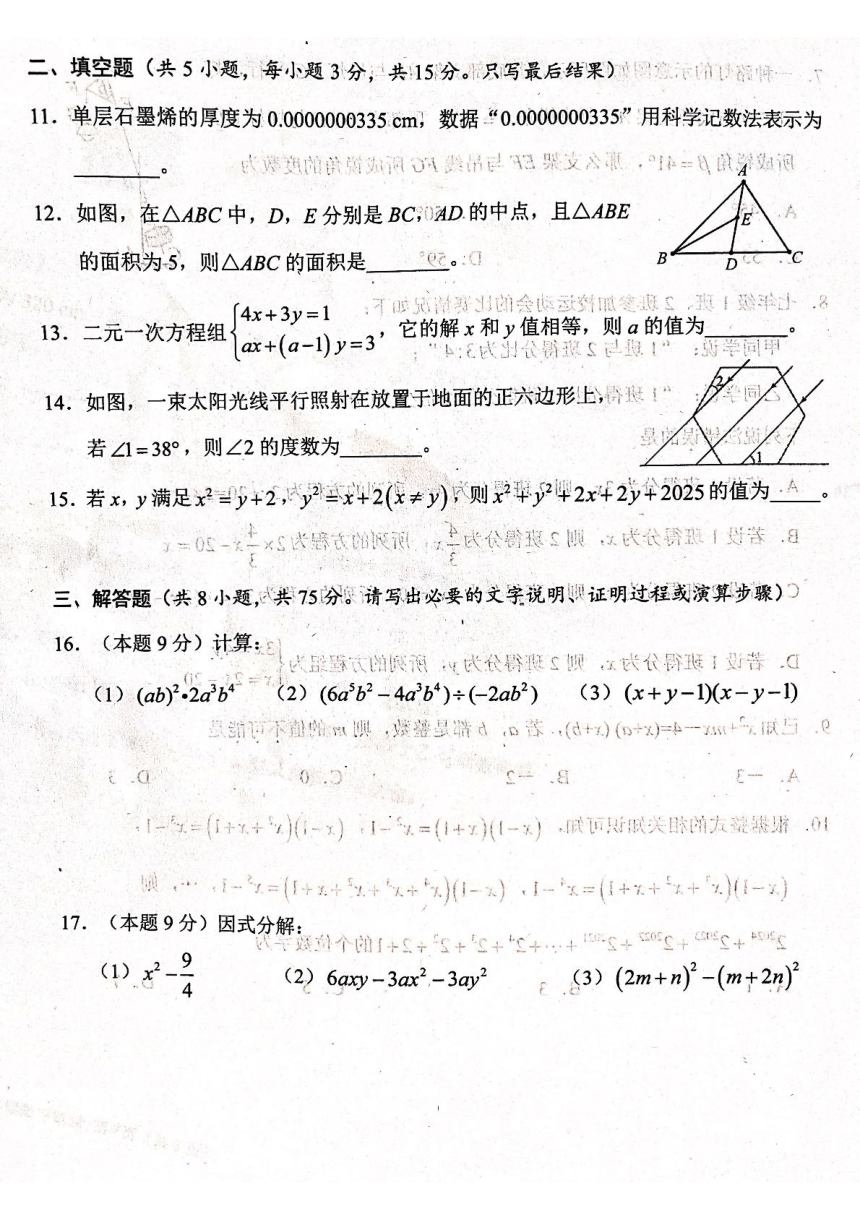 二、填空题（共 5 小题，每小题 3 分，共15分。只写最后结果）
11．单层石墨烯的厚度为 0.0000000335 cm，数据“0.0000000335”用科学记数法表示为
________。
12．如图，在△ABC 中，D，E 分别是 BC，AD 的中点，且△ABE
的面积为 5，则△ABC 的面积是________。
A
E
B
D
C
13．二元一次方程组{4x+3y=1
ax+(a−1)y=3，它的解 x 和 y 值相等，则 a 的值为________。
14．如图，一束太阳光线平行照射在放置于地面的正六边形上，
若∠1=38°，则∠2 的度数为________。
2
1
15．若 x，y 满足 x²=y+2，y²=x+2(x≠y)，则 x²+y²+2x+2y+2025 的值为_____。
三、解答题（共 8 小题，共 75 分。请写出必要的文字说明、证明过程或演算步骤）
16．（本题 9 分）计算：
（1）(ab)²•2a³b⁴ （2）(6a⁵b²−4a³b⁴)÷(−2ab²) （3）(x+y−1)(x−y−1)
17．（本题 9 分）因式分解：
（1）x²−9/4 （2）6axy−3ax²−3ay² （3）(2m+n)²−(m+2n)²